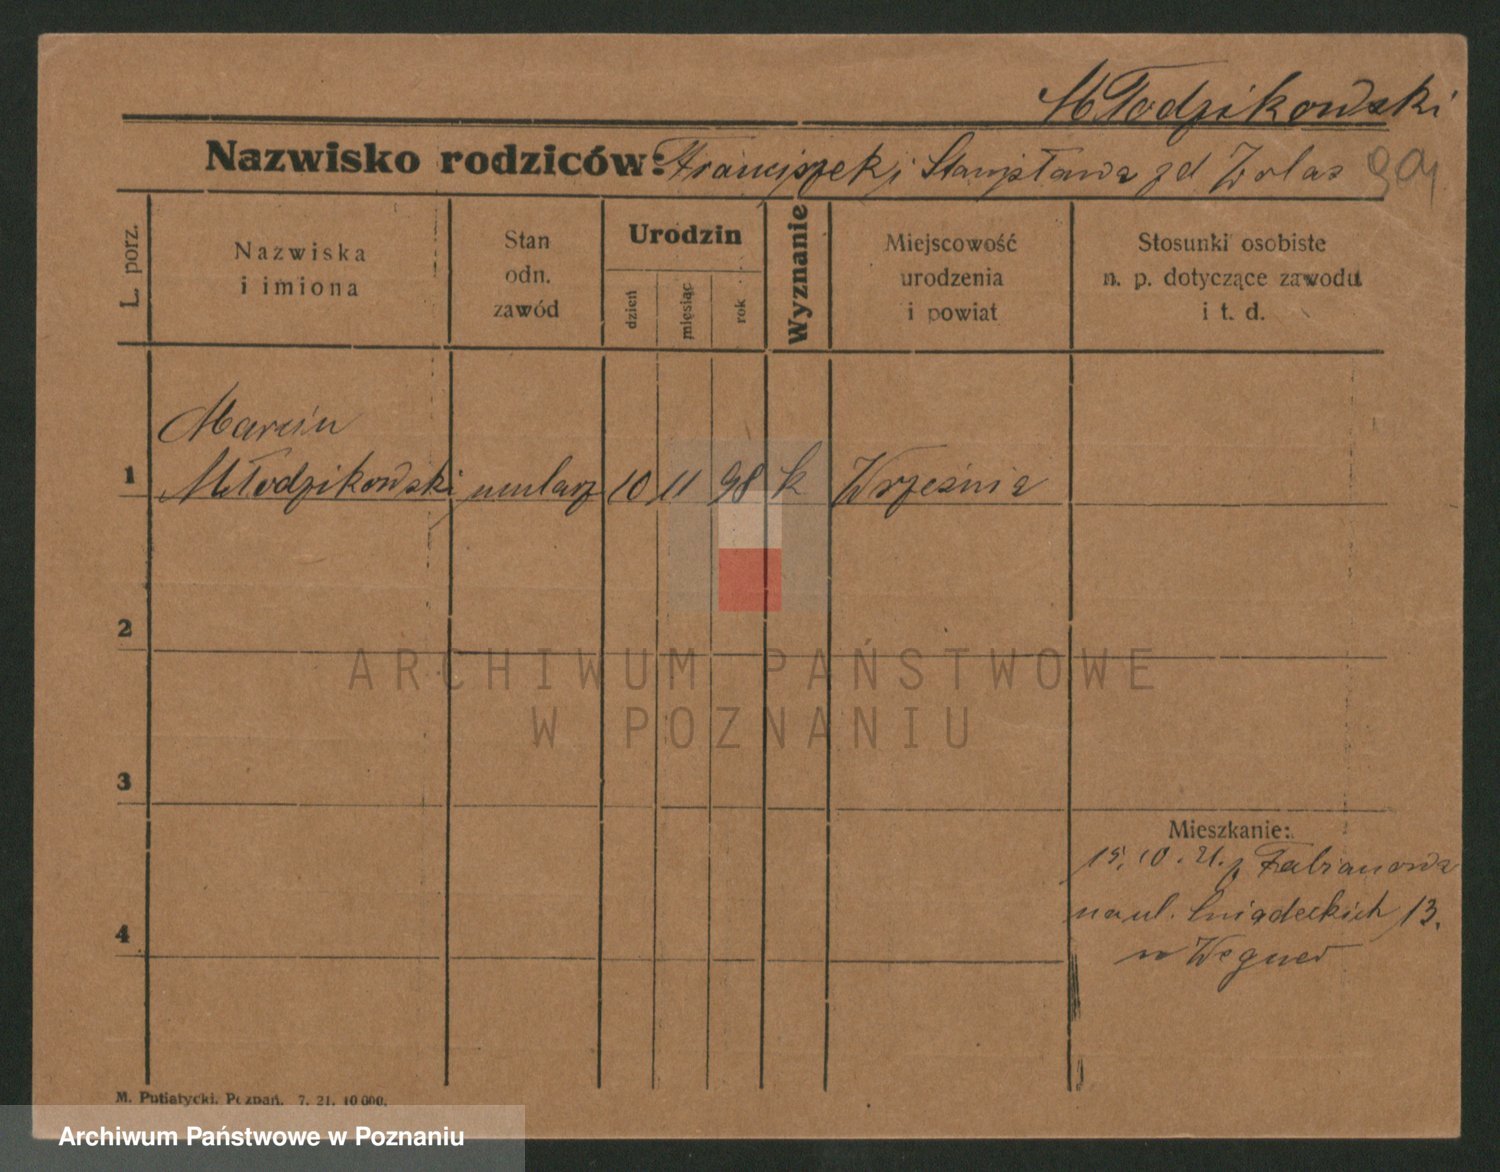 Młodzikowski
Nazwisko rodziców: Franciszek i Stanisława zd Wolas
L. porz.
Nazwiska
i imiona
Stan
odn.
zawód
Urodzin
dzień
miesiąc
rok
Wyznanie
Miejscowość
urodzenia
i powiat
Stosunki osobiste
n. p. dotyczące zawodu
i t. d.
Marcin
1 Młodzikowski mularz 10 11 98 k Września
2
ARCHIWUM PAŃSTWOWE
W POZNANIU
3
Mieszkanie:
15.10.21. z Fabianowa
na ul. Śniadeckich 13.
4
w Wegner
M. Putiatycki, Poznań. 7. 21. 10 000.
Archiwum Państwowe w Poznaniu